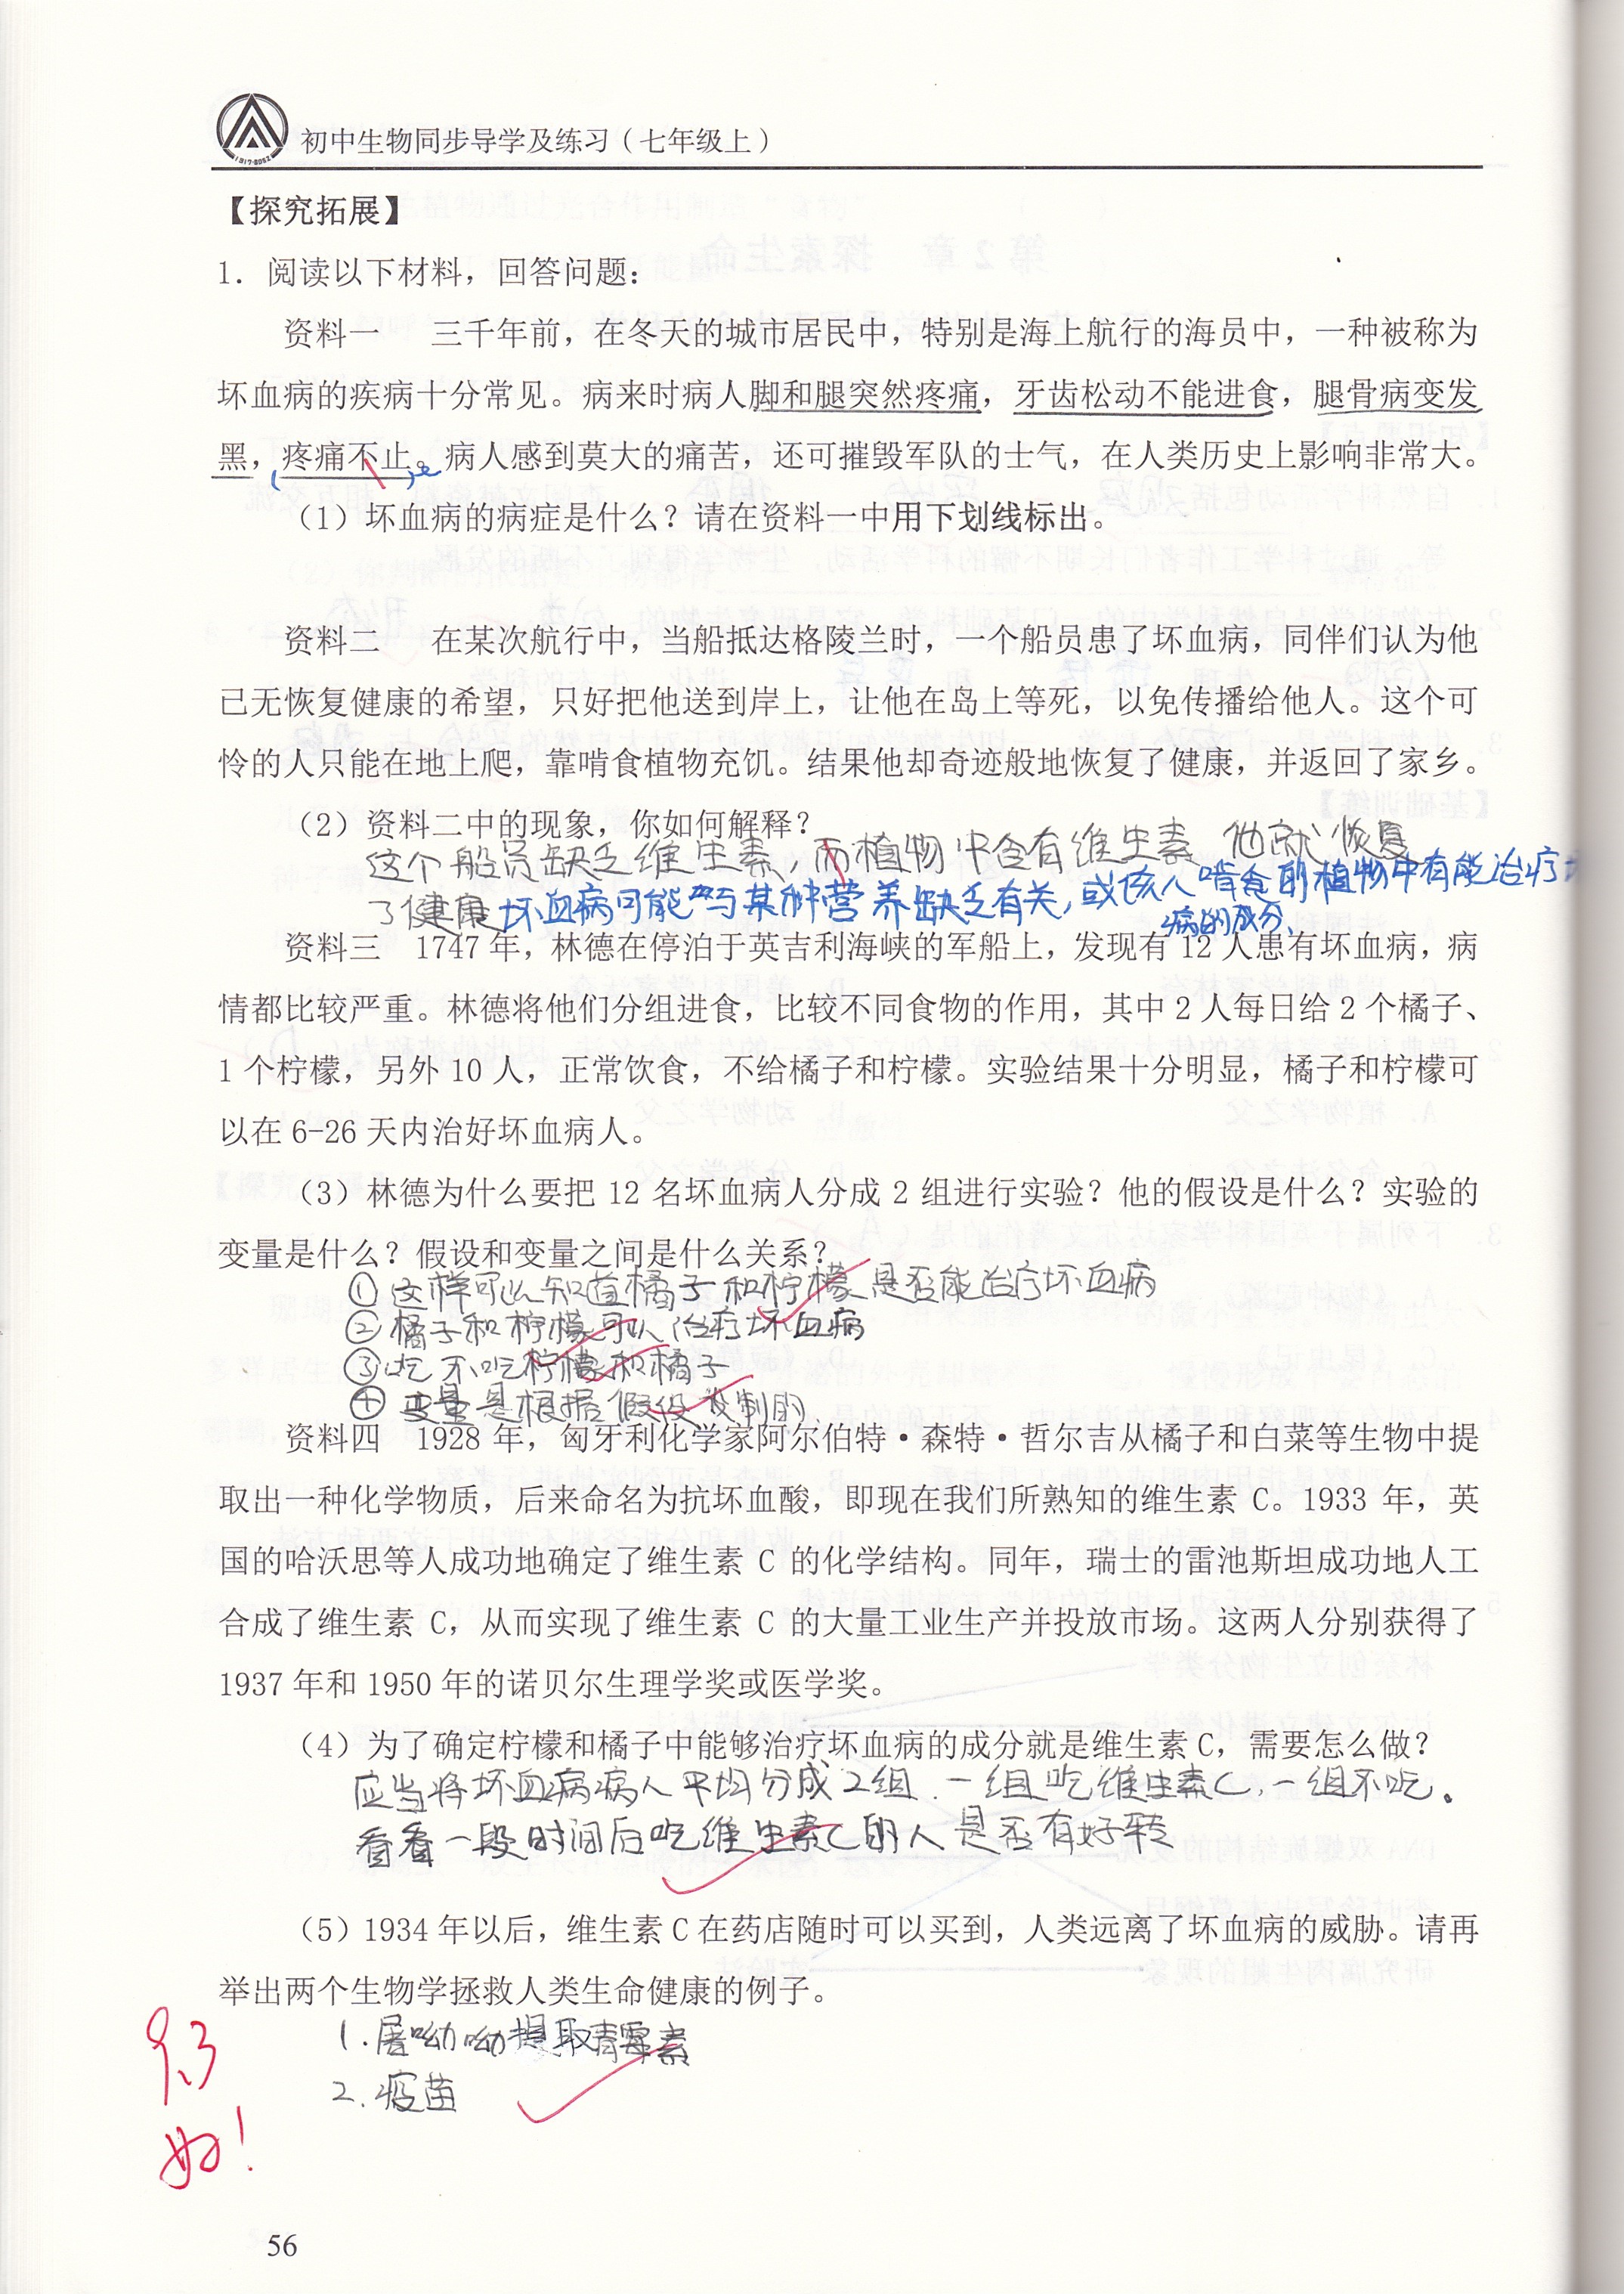 初中生物同步导学及练习（七年级上）
【探究拓展】
1. 阅读以下材料，回答问题：
资料一 三千年前，在冬天的城市居民中，特别是海上航行的海员中，一种被称为
坏血病的疾病十分常见。病来时病人脚和腿突然疼痛，牙齿松动不能进食，腿骨病变发
黑，疼痛不止。病人感到莫大的痛苦，还可摧毁军队的士气，在人类历史上影响非常大。
（1）坏血病的病症是什么？请在资料一中用下划线标出。
资料二 在某次航行中，当船抵达格陵兰时，一个船员患了坏血病，同伴们认为他
已无恢复健康的希望，只好把他送到岸上，让他在岛上等死，以免传播给他人。这个可
怜的人只能在地上爬，靠啃食植物充饥。结果他却奇迹般地恢复了健康，并返回了家乡。
（2）资料二中的现象，你如何解释？
这个船员缺乏维生素，而植物中含有维生素 他就恢复
了健康 坏血病可能与某种营养缺乏有关，或该人啃食的植物中有能治疗
病的成分、
资料三 1747 年，林德在停泊于英吉利海峡的军船上，发现有 12 人患有坏血病，病
情都比较严重。林德将他们分组进食，比较不同食物的作用，其中 2 人每日给 2 个橘子、
1 个柠檬，另外 10 人，正常饮食，不给橘子和柠檬。实验结果十分明显，橘子和柠檬可
以在 6-26 天内治好坏血病人。
（3）林德为什么要把 12 名坏血病人分成 2 组进行实验？他的假设是什么？实验的
变量是什么？假设和变量之间是什么关系？
①这样可以知道橘子和柠檬是否能治疗坏血病
②橘子和柠檬可以治疗坏血病
③吃不吃柠檬和橘子
④变量是根据假设设制的
资料四 1928 年，匈牙利化学家阿尔伯特·森特·哲尔吉从橘子和白菜等生物中提
取出一种化学物质，后来命名为抗坏血酸，即现在我们所熟知的维生素 C。1933 年，英
国的哈沃思等人成功地确定了维生素 C 的化学结构。同年，瑞士的雷池斯坦成功地人工
合成了维生素 C，从而实现了维生素 C 的大量工业生产并投放市场。这两人分别获得了
1937 年和 1950 年的诺贝尔生理学奖或医学奖。
（4）为了确定柠檬和橘子中能够治疗坏血病的成分就是维生素 C，需要怎么做？
应当将坏血病病人平均分成2组．一组吃维生素C，一组不吃。
看看一段时间后吃维生素C的人是否有好转
（5）1934 年以后，维生素 C 在药店随时可以买到，人类远离了坏血病的威胁。请再
举出两个生物学拯救人类生命健康的例子。
1.屠呦呦提取青霉素
2.疫苗
9.3
好！
56